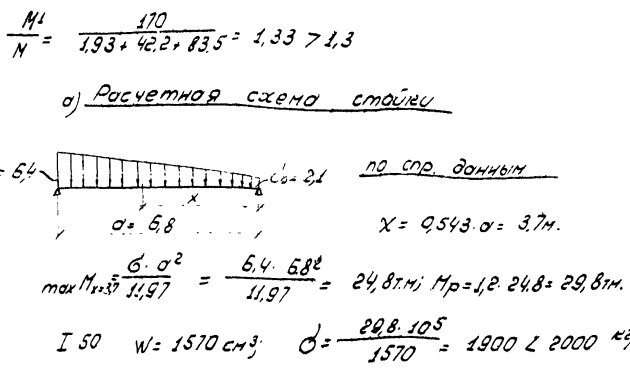 M¹/N = 170/(1,93 + 42,2 + 83,5) = 1,33 > 1,3
а) Расчетная схема стойки
= 6,4 σ = 2,1 по спр. данным
x
a = 6,8 X = 0,543·a = 3,7м.
max Mx=3,7 = σ·a²/11,97 = 6,4·6,8²/11,97 = 24,8т.м; Mp = 1,2·24.8 = 29,8тм.
I 50 W = 1570 см³; σ = 29,8·10⁵/1570 = 1900 < 2000 кг/